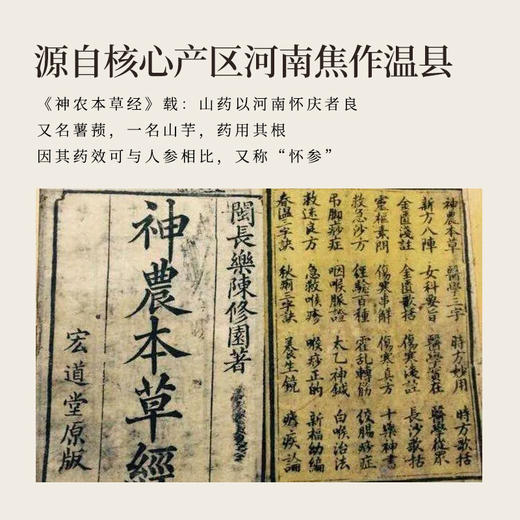 源自核心产区河南焦作温县
《神农本草经》载：山药以河南怀庆者良
又名薯蓣，一名山芋，药用其根
因其药效可与人参相比，又称“怀参”
閩長樂陳修園著
神農本草經
宏道堂原版
神農本草 醫學三字 時方妙用 時方歌括
新方八陣 女科要旨 醫學實在 醫學從眾
金匱淺註 金匱歌括 傷寒淺註 長沙歌括
靈樞素問 傷寒串解 傷寒真方 十藥神書
救急沙方 經驗百種 霍亂轉筋 絞腸痧症
吊腳痧症 咽喉脉證 太乙神鍼 白喉治法
救迷良方 急救喉疹 喉痧正的 新福幼編
春溫三字訣 秋瘧三字訣 養生鏡 瘧疾論